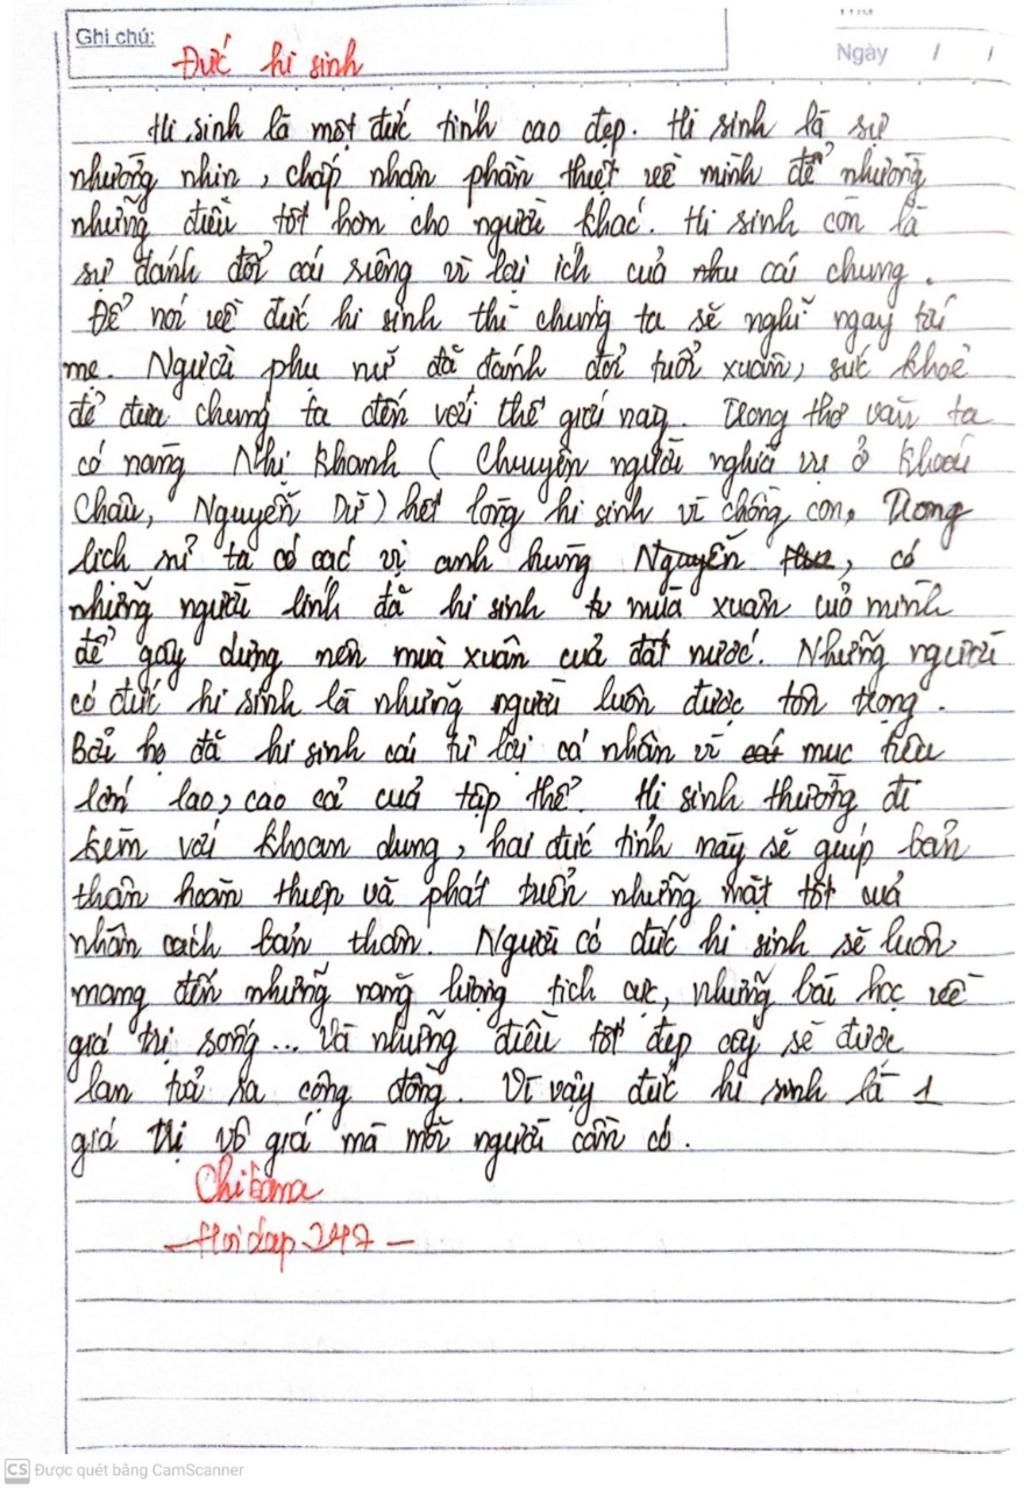 Ghi chú:
Đức hi sinh
Thứ
Ngày / /
Hi sinh là một đức tính cao đẹp. Hi sinh là sự
nhường nhịn, chấp nhận phần thiệt về mình để nhường
những điều tốt hơn cho người khác. Hi sinh còn là
sự đánh đổi cái riêng vì lợi ích của nhu cái chung.
Để nói về đức hi sinh thì chúng ta sẽ nghĩ ngay tới
mẹ. Người phụ nữ đã đánh đổi tuổi xuân, sức khoẻ
để đưa chúng ta đến với thế giới này. Trong thơ văn ta
có nàng Nhị Khanh (Chuyện người nghĩa vụ ở Khoái
Châu, Nguyễn Dữ) hết lòng hi sinh vì chồng con. Trong
lịch sử ta có các vị anh hùng Nguyễn, có
những người lính đã hi sinh mùa xuân của mình
để gây dựng nên mùa xuân của đất nước. Những người
có đức hi sinh là những người luôn được tôn trọng.
Bởi họ đã hi sinh cái tư lợi cá nhân vì cái mục tiêu
lớn lao, cao cả của tập thể. Hi sinh thường đi
kèm với khoan dung, hai đức tính này sẽ giúp bản
thân hoàn thiện và phát triển những mặt tốt của
nhân cách bản thân. Người có đức hi sinh sẽ luôn
mang đến những năng lượng tích cực, những bài học về
giá trị sống... Và những điều tốt đẹp ấy sẽ được
lan toả ra cộng đồng. Vì vậy đức hi sinh là 1
giá trị vô giá mà mỗi người cần có.
Chibana
- Hoidap 247 -
CS Được quét bằng CamScanner